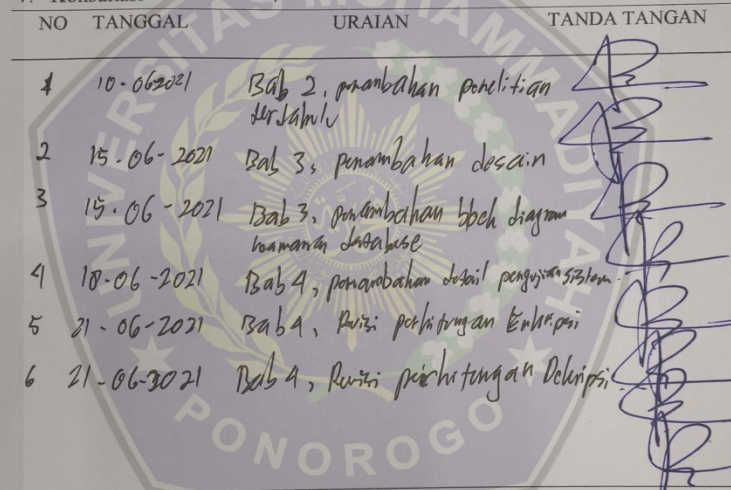 7. Konsultasi
NO TANGGAL URAIAN TANDA TANGAN
1 10-062021 Bab 2, penambahan penelitian
terdahulu
2 15-06-2021 Bab 3, penambahan desain
3 15-06-2021 Bab 3, penambahan block diagram
database
4 18-06-2021 Bab 4, penambahan detail pengujian sistem.
5 21-06-2021 Bab 4, Revisi perhitungan Enkripsi
6 21-06-2021 Bab 4, Revisi perhitungan Dekripsi
UNIVERSITAS MUHAMMADIYAH
PONOROGO